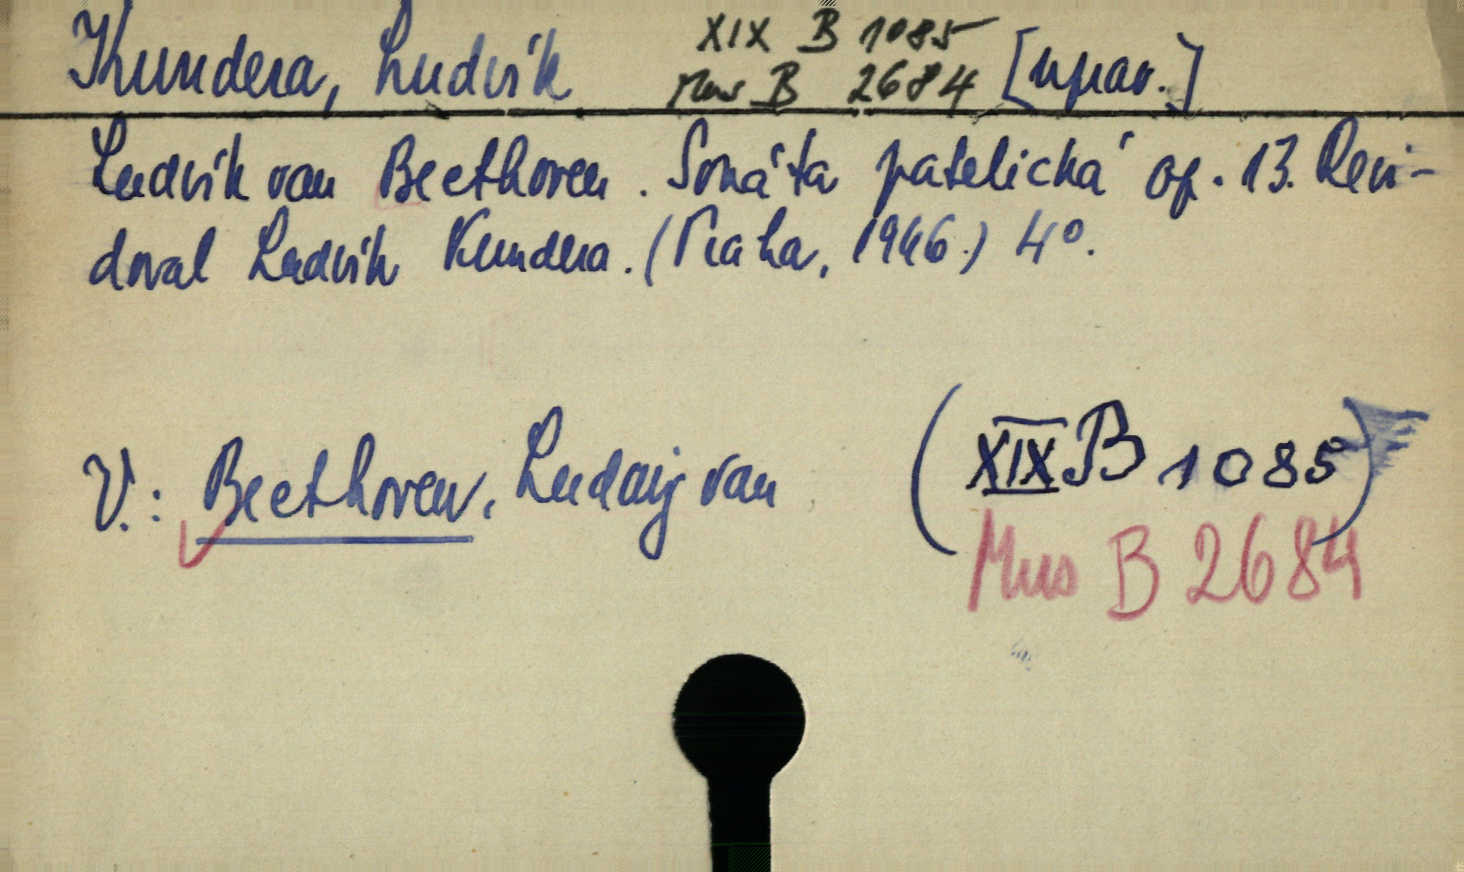 Kundera, Ludvík XIX B 1085
Mus B 2684 [uprav.]
Ludvík van Beethoven. Sonáta patetická op. 13. Revi-
doval Ludvík Kundera. (Praha, 1946.) 4°.
V.: Beethoven, Ludwig van (XIX B 1085)
Mus B 2684